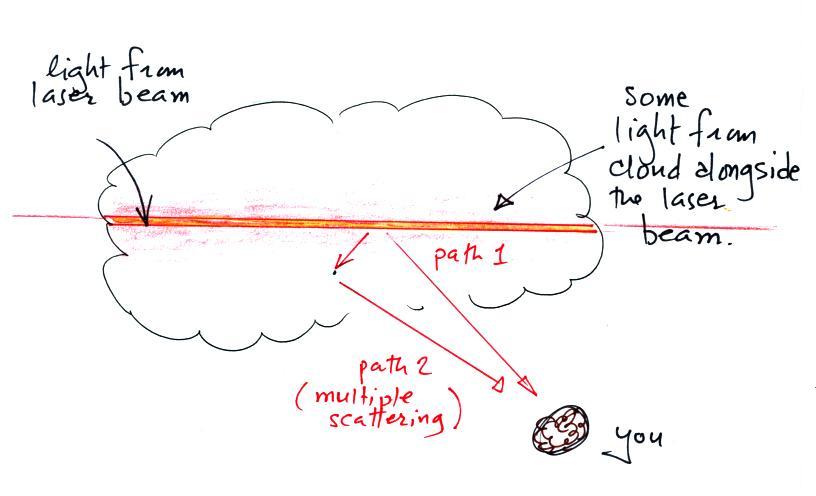 light from
laser beam
some
light from
cloud alongside
the laser
beam.
path 1
path 2
(multiple
scattering)
you